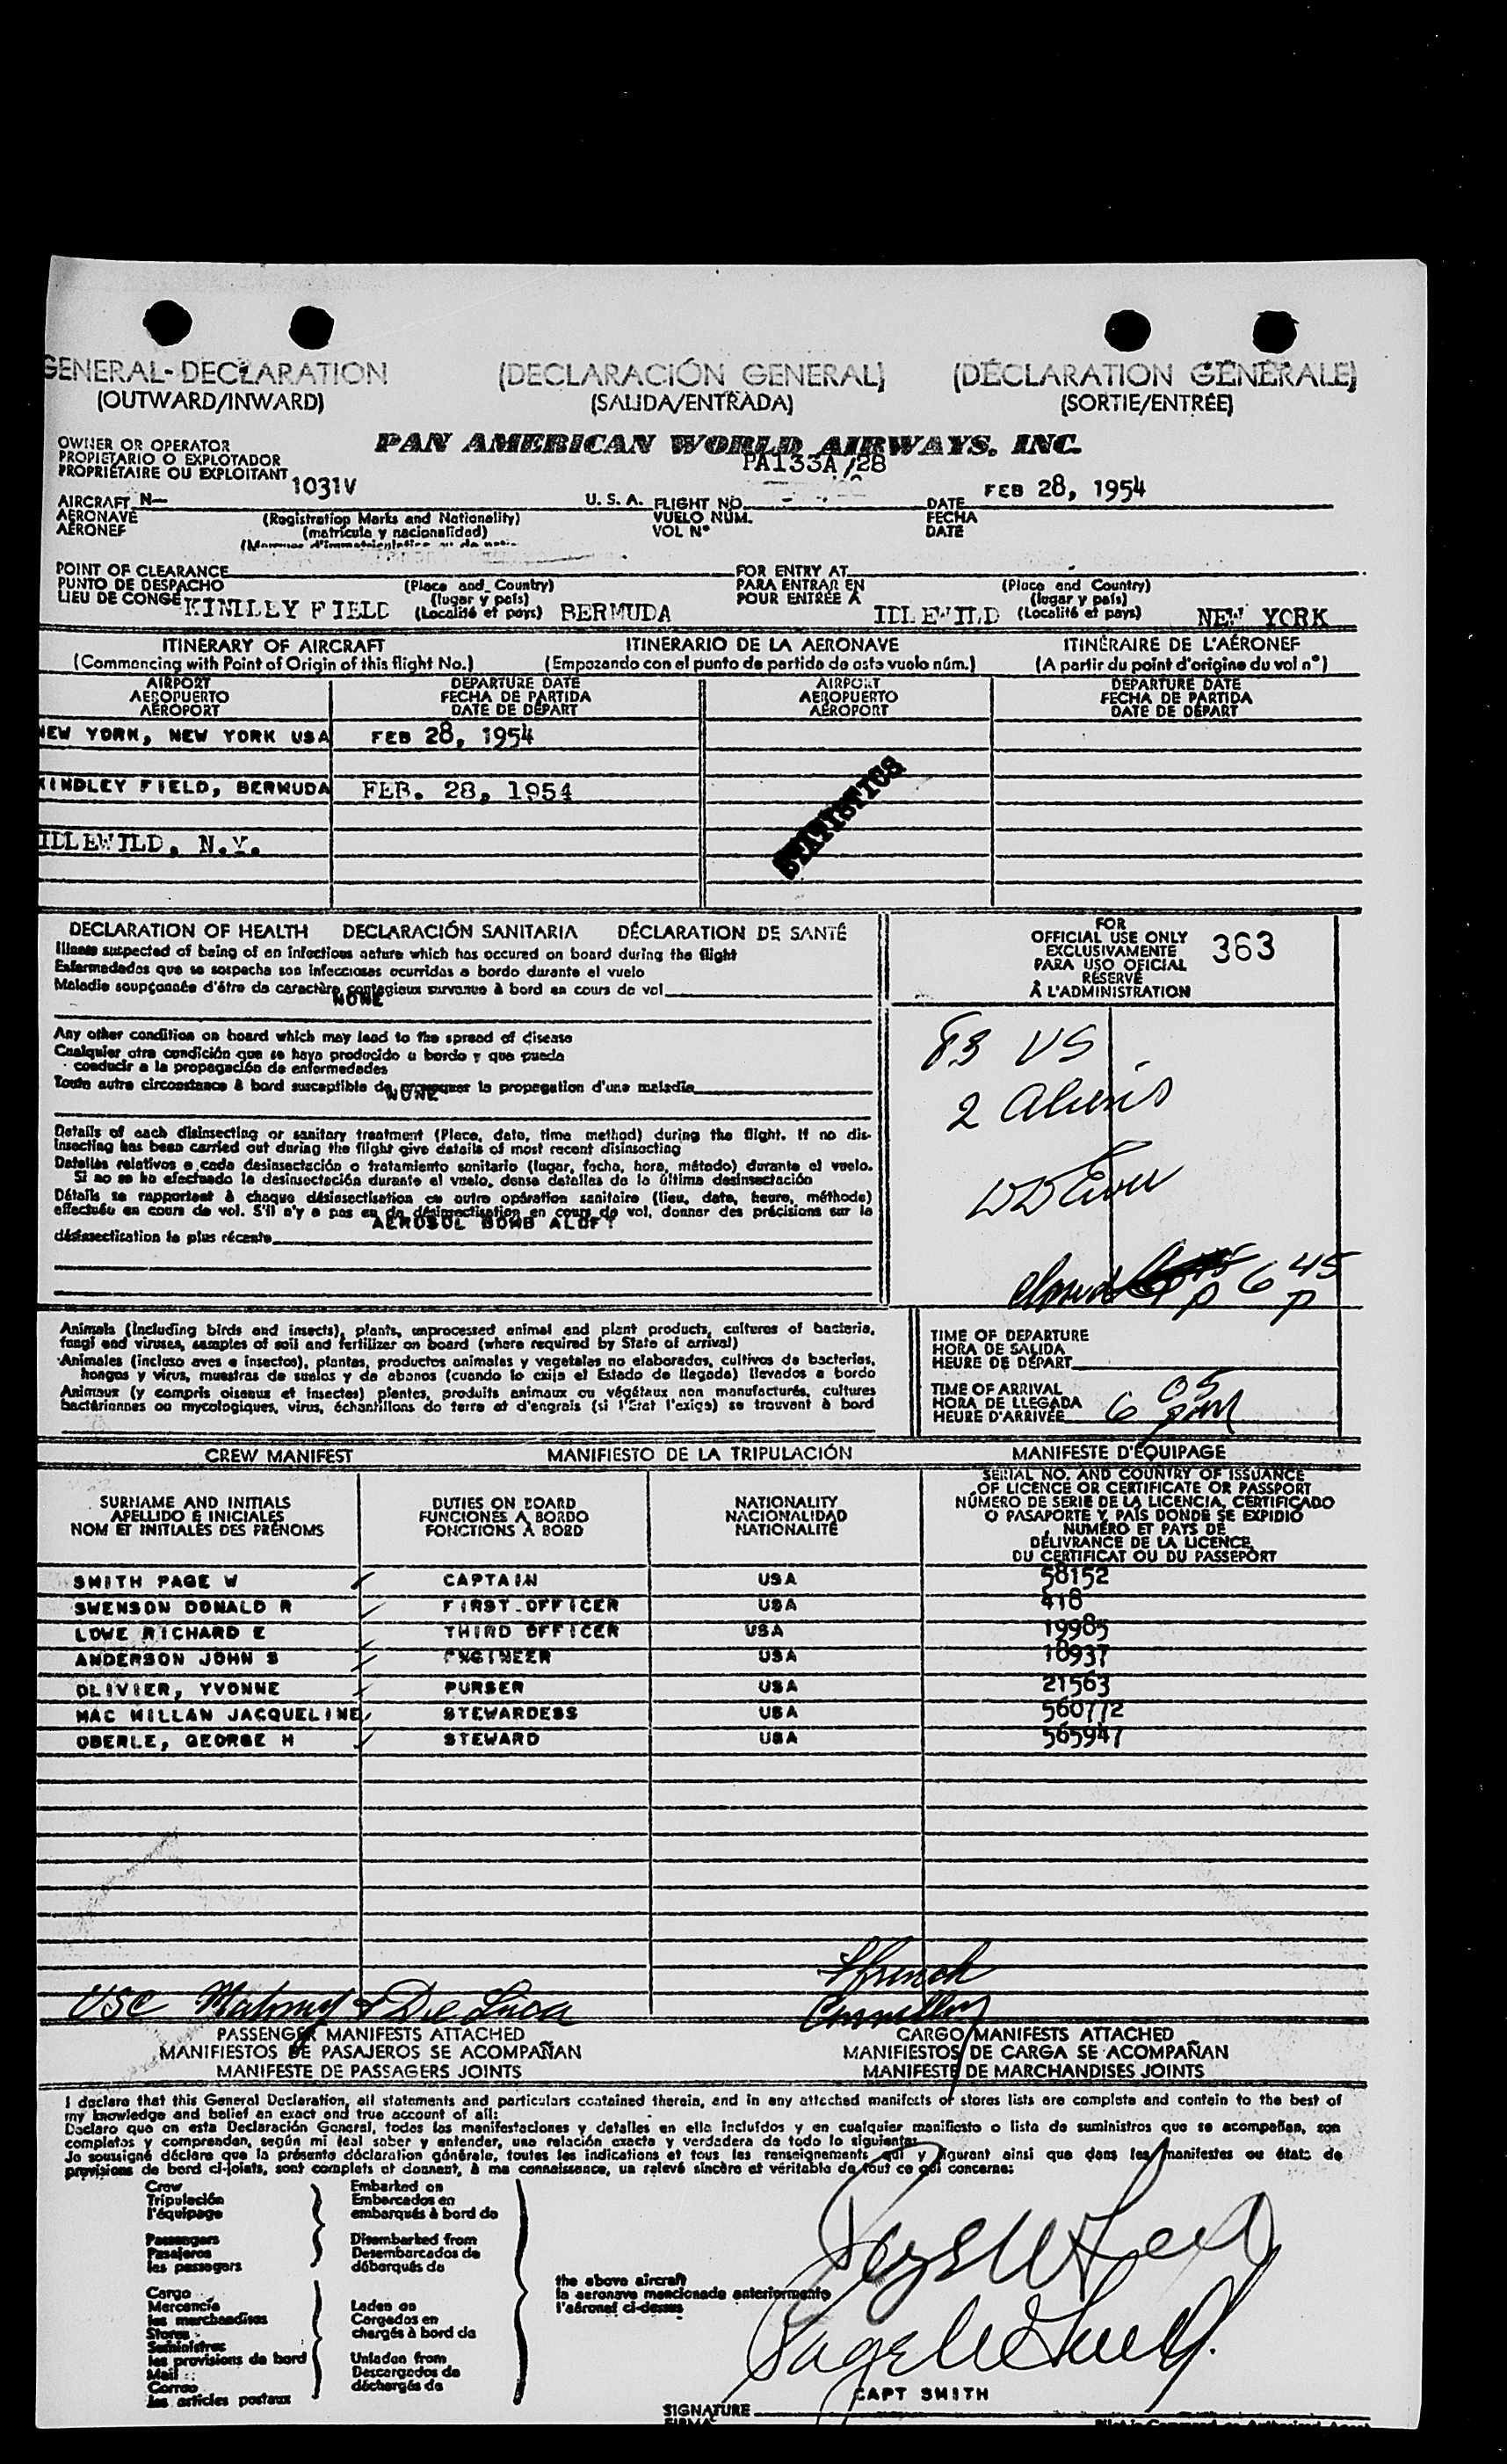 GENERAL-DECLARATION (DECLARACIÓN GENERAL) (DÉCLARATION GÉNÉRALE)
(OUTWARD/INWARD) (SALIDA/ENTRADA) (SORTIE/ENTRÉE)
OWNER OR OPERATOR
PROPIETARIO O EXPLOTADOR
PROPRIÉTAIRE OU EXPLOITANT
PAN AMERICAN WORLD AIRWAYS, INC.
PA133A/28
1031V
FEB 28, 1954
AIRCRAFT N— U. S. A. FLIGHT NO. DATE
AERONAVE (Registration Marks and Nationality) VUELO NÚM. FECHA
AÉRONEF (matrícula y nacionalidad) VOL N° DATE
POINT OF CLEARANCE FOR ENTRY AT
PUNTO DE DESPACHO (Place and Country) PARA ENTRAR EN (Place and Country)
LIEU DE CONGÉ (lugar y país) POUR ENTRÉE À (lugar y país)
KINDLEY FIELD (Localité et pays) BERMUDA IDLEWILD (Localité et pays) NEW YORK
ITINERARY OF AIRCRAFT ITINERARIO DE LA AERONAVE ITINÉRAIRE DE L'AÉRONEF
(Commencing with Point of Origin of this flight No.) (Empezando con el punto de partida de este vuelo núm.) (A partir du point d'origine du vol n°)
AIRPORT DEPARTURE DATE AIRPORT DEPARTURE DATE
AEROPUERTO FECHA DE PARTIDA AEROPUERTO FECHA DE PARTIDA
AÉROPORT DATE DE DÉPART AÉROPORT DATE DE DÉPART
NEW YORK, NEW YORK USA FEB 28, 1954
KINDLEY FIELD, BERMUDA FEB. 28, 1954
STATISTICS
IDLEWILD, N.Y.
DECLARATION OF HEALTH DECLARACIÓN SANITARIA DÉCLARATION DE SANTÉ
Illness suspected of being of an infectious nature which has occured on board during the flight
Enfermedades que se sospecha son infecciosas ocurridas a bordo durante el vuelo
Maladie soupçonnée d'être de caractère contagieux survenue à bord en cours de vol
NONE
Any other condition on board which may lead to the spread of disease
Cualquier otra condición que se haya producido a bordo y que pueda
conducir a la propagación de enfermedades
Toute autre circonstance à bord susceptible de provoquer la propagation d'une maladie
NONE
Details of each disinsecting or sanitary treatment (Place, date, time method) during the flight. If no dis-
insecting has been carried out during the flight give details of most recent disinsecting
Detalles relativos a cada desinsectación o tratamiento sanitario (lugar, fecha, hora, método) durante el vuelo.
Si no se ha efectuado la desinsectación durante el vuelo, dense detalles de la última desinsectación
Détails se rapportant à chaque désinsectisation ou autre opération sanitaire (lieu, date, heure, méthode)
effectuée en cours de vol. S'il n'y a pas eu de désinsectisation en cours de vol, donner des précisions sur la
AEROSOL BOMB ALOFT
désinsectisation la plus récente
FOR
OFFICIAL USE ONLY
EXCLUSIVAMENTE
PARA USO OFICIAL
RÉSERVÉ
À L'ADMINISTRATION
363
83 US
2 Aliens
6 45
P P
Animals (including birds and insects), plants, unprocessed animal and plant products, cultures of bacteria,
fungi and viruses, samples of soil and fertilizer on board (where required by State of arrival)
Animales (incluso aves e insectos), plantas, productos animales y vegetales no elaborados, cultivos de bacterias,
hongos y virus, muestras de suelos y de abonos (cuando lo exija el Estado de llegada) llevados a bordo
Animaux (y compris oiseaux et insectes) plantes, produits animaux ou végétaux non manufacturés, cultures
bactériennes ou mycologiques, virus, échantillons de terre et d'engrais (si l'État l'exige) se trouvant à bord
TIME OF DEPARTURE
HORA DE SALIDA
HEURE DE DÉPART
TIME OF ARRIVAL
HORA DE LLEGADA
HEURE D'ARRIVÉE
6 05 pm
CREW MANIFEST MANIFIESTO DE LA TRIPULACIÓN MANIFESTE D'ÉQUIPAGE
SURNAME AND INITIALS
APELLIDO E INICIALES
NOM ET INITIALES DES PRÉNOMS
DUTIES ON BOARD
FUNCIONES A BORDO
FONCTIONS À BORD
NATIONALITY
NACIONALIDAD
NATIONALITÉ
SERIAL NO. AND COUNTRY OF ISSUANCE
OF LICENCE OR CERTIFICATE OR PASSPORT
NÚMERO DE SERIE DE LA LICENCIA, CERTIFICADO
O PASAPORTE Y PAÍS DONDE SE EXPIDIÓ
NUMÉRO ET PAYS DE
DÉLIVRANCE DE LA LICENCE
DU CERTIFICAT OU DU PASSEPORT
SMITH PAGE W CAPTAIN USA 58152
SWENSON DONALD R FIRST OFFICER USA 418
LOWE RICHARD E THIRD OFFICER USA 19985
ANDERSON JOHN S ENGINEER USA 18937
OLIVIER, YVONNE PURSER USA 21563
MAC MILLAN JACQUELINE STEWARDESS USA 560772
OBERLE, GEORGE H STEWARD USA 565947
French
USC Mahoney & De Luca Connelly
PASSENGER MANIFESTS ATTACHED CARGO MANIFESTS ATTACHED
MANIFIESTOS DE PASAJEROS SE ACOMPAÑAN MANIFIESTOS DE CARGA SE ACOMPAÑAN
MANIFESTE DE PASSAGERS JOINTS MANIFESTE DE MARCHANDISES JOINTS
I declare that this General Declaration, all statements and particulars contained therein, and in any attached manifests of stores lists are complete and contain to the best of
my knowledge and belief an exact and true account of all:
Declaro que en esta Declaración General, todas las manifestaciones y detalles en ella incluídos y en cualquier manifiesto o lista de suministros que se acompañan, son
completos y comprenden, según mi leal saber y entender, una relación exacta y verdadera de todo lo siguiente:
Je soussigné déclare que la présente déclaration générale, toutes les indications et tous les renseignements qui y figurant ainsi que dans les manifestes ou états de
provisions de bord ci-joints, sont complets et donnent, à ma connaissance, un relevé sincère et véritable de tout ce qui concerne:
Crew Embarked on
Tripulación Embarcados en
l'équipage embarqués à bord de
Passengers Disembarked from
Pasajeros Desembarcados de
les passagers débarqués de
the above aircraft
la aeronave mencionada anteriormente
l'aéronef ci-dessus
Cargo
Mercancía Laden on
les marchandises Cargados en
Stores chargés à bord de
Suministros
les provisions de bord Unladen from
Mail Descargados de
Correo déchargés de
les articles postaux
Page W Smith
CAPT SMITH
SIGNATURE
FIRMA